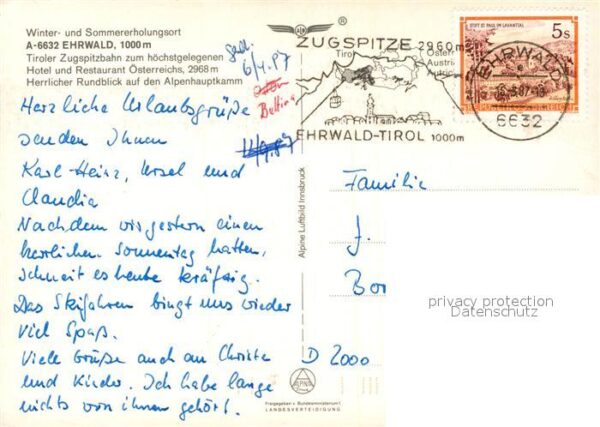 Winter- und Sommererholungsort
A-6632 EHRWALD, 1000 m
Tiroler Zugspitzbahn zum höchstgelegenen
Hotel und Restaurant Österreichs, 2968 m
Herrlicher Rundblick auf den Alpenhauptkamm
6/4.87
Bettina
11/4.87
ZUGSPITZE 2960 m
Tirol
Österr
Austri
EHRWALD-TIROL 1000m
STIFT ST. PAUL IM LAVANTTAL
5s
EHRWALD
6632
Herzliche Urlaubsgrüße
senden Ihnen
Karl-Heinz, Ursel und
Claudia
Nachdem wir gestern einen
herrlichen Sonnentag hatten,
schneit es heute kräftig.
Das Skifahren bringt uns wieder
viel Spaß.
Viele Grüße auch an Christe
und Kinder. Ich habe lange
nichts von ihnen gehört.
Alpine Luftbild Innsbruck
Familie
J.
Bor
D 2000
privacy protection
Datenschutz
Freigegeben v. Bundesministerium f.
LANDESVERTEIDIGUNG